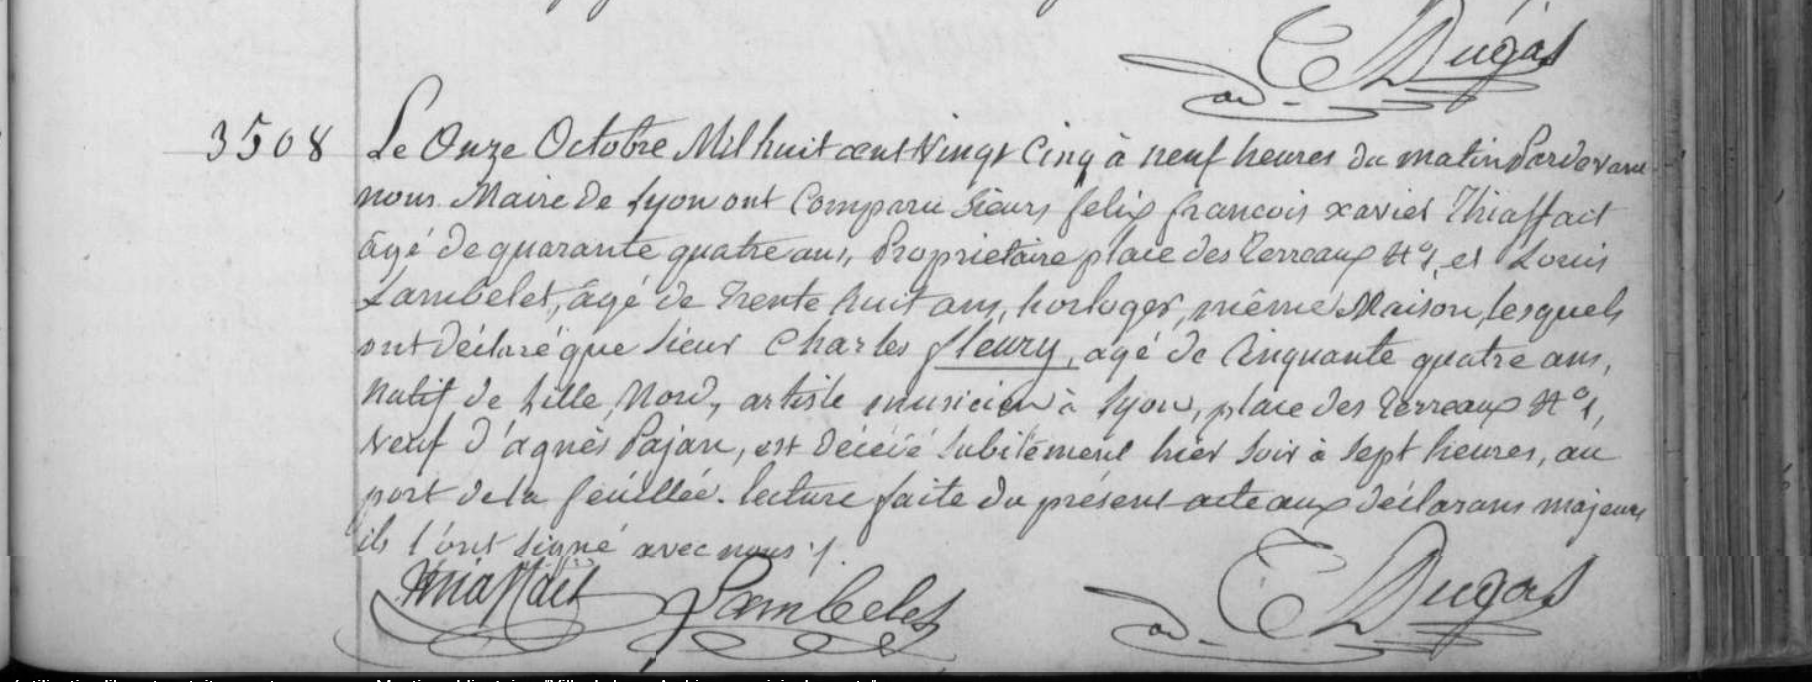 E Dugas
ad.
3508 Le Onze Octobre Mil huit cent Vingt Cinq à neuf heures du matin Pardevant
nous Maire de Lyon ont Comparu Sieurs felix francois xavier Thiaffait
âgé de quarante quatre ans, Propriétaire place des Terreaux Nº 1, et Louis
Lambelet, âgé de Trente huit ans, horloger, même Maison, lesquels
ont déclaré que Sieur Charles fleury, agé de Cinquante quatre ans,
Natif de Lille, Nord, artiste musicien à Lyon, place des Terreaux Nº 1,
Veuf d'agnès Pajan, est décédé Subitement hier Soir à Sept heures, au
port de la feuillée. lecture faite du présent acte aux déclarans majeurs
ils l'ont signé avec nous ./.
Thiaffait Lambelet E Dugas
ad.